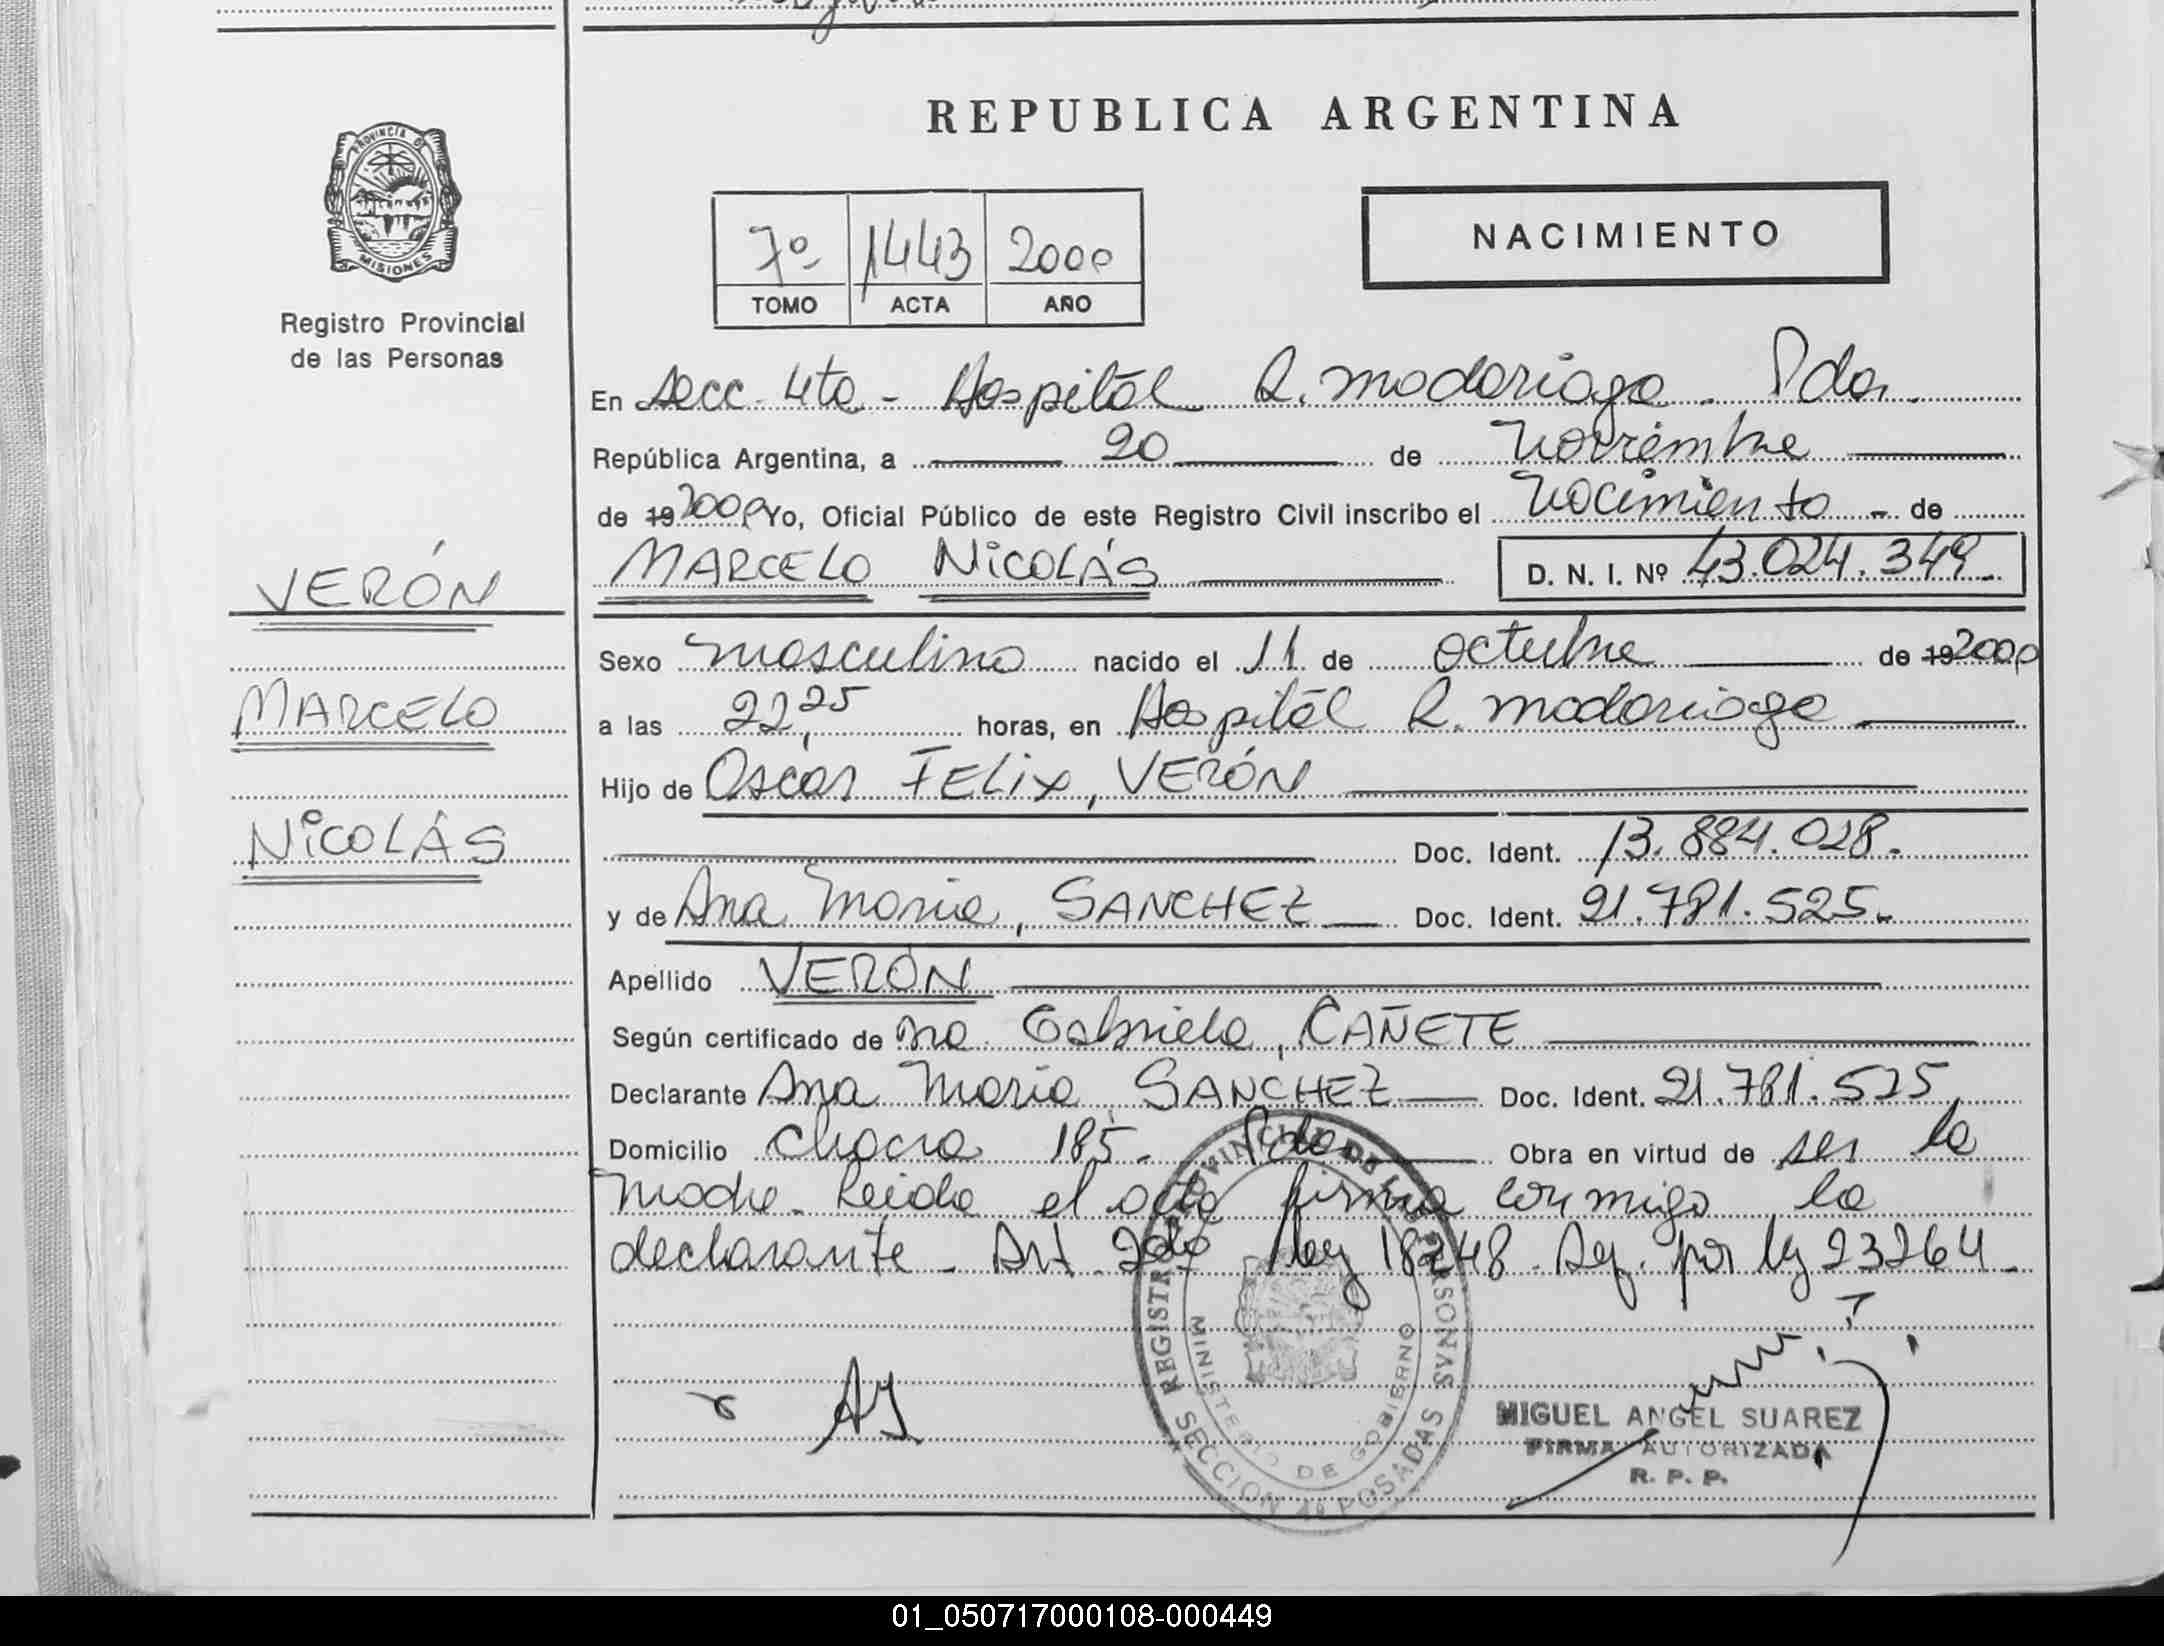 REPUBLICA ARGENTINA
PROVINCIA DE
MISIONES
Registro Provincial
de las Personas
7º 1443 2000
TOMO ACTA AÑO
NACIMIENTO
En Secc. 4ta - Hospital R. Madariaga. Pdas.
República Argentina, a 20 de Noviembre
de 19 2000 Yo, Oficial Público de este Registro Civil inscribo el Nacimiento - de
MARCELO NICOLÁS D. N. I. Nº 43.024.349.
VERÓN
MARCELO
NICOLÁS
Sexo masculino nacido el 11 de octubre de 19 2000
a las 22,25 horas, en Hospital R. Madariaga
Hijo de Oscar FELIX, VERÓN
Doc. Ident. 13.884.028.
y de Ana Maria, SANCHEZ Doc. Ident. 21.781.525.
Apellido VERÓN
Según certificado de Gabriela, CAÑETE
Declarante Ana Maria SANCHEZ Doc. Ident. 21.781.525
Domicilio Chacra 185. Pdas Obra en virtud de ser la
madre. Leida el acta firma conmigo la
declarante. Art. 2do ley 18248. por ley 23264.
REGISTRO PROVINCIAL DE LAS PERSONAS
MINISTERIO DE GOBIERNO
SECCION 4º POSADAS
MIGUEL ANGEL SUAREZ
FIRMA AUTORIZADA
R. P. P.
01_050717000108-000449